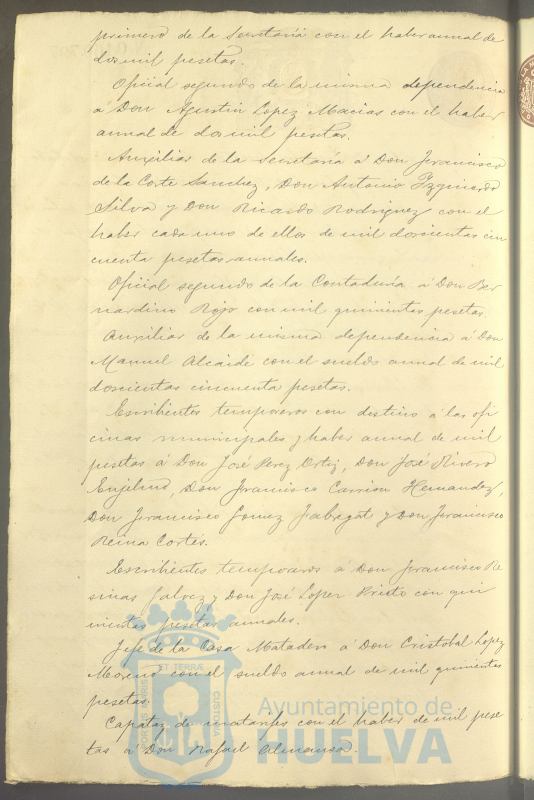 primero de la Secretaría con el haber anual de
dos mil pesetas.
Oficial segundo de la misma dependencia
á Don Agustin Lopez Macias con el haber
anual de dos mil pesetas.
Auxiliar de la Secretaría á Don Francisco
de la Corte Sanchez, Don Antonio Yzquierdo
Silva y Don Ricardo Rodriguez con el
haber cada uno de ellos de mil doscientas cin
cuenta pesetas anuales.
Oficial segundo de la Contaduría á Don Ber
nardino Rojo con mil quinientas pesetas.
Auxiliar de la misma dependencia á Don
Manuel Alcaide con el sueldo anual de mil
doscientas cincuenta pesetas.
Escribientes temporeros con destino á las ofi
cinas municipales y haber anual de mil
pesetas á Don José Perez Ortiz, Don José Rivero
Don Francisco Carrion Hernandez,
Don Francisco Gomez Fabregat y Don Francisco
Reina Cortés.
Escribientes temporeros á Don Francisco Re
sinas Galvez y Don José Lopez Prieto con qui
nientas pesetas anuales.
Jefe de la Casa Matadero á Don Cristobal Lopez
Moreno con el sueldo anual de mil quinientas
pesetas.
Capataz de matarifes con el haber de mil pese
tas á Don Rafael Almansa.
ET TERRÆ
PORTUS MARIS
CUSTODIA
Ayuntamiento de
HUELVA